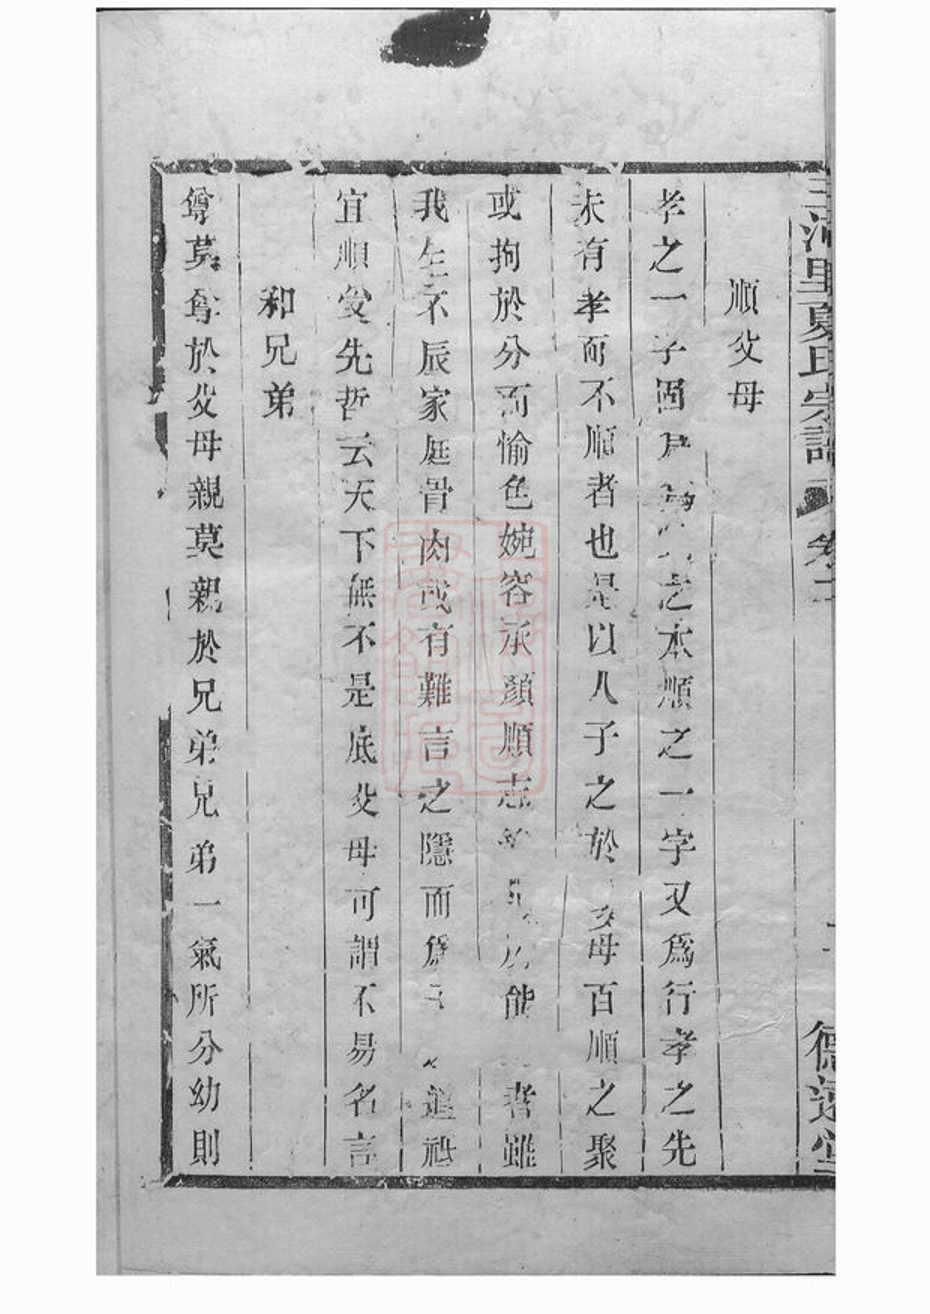 里夏氏宗譜 卷二 德遠堂
順父母
孝之一字固之本順之一字又爲行孝之先
未有孝而不順者也是以人子之於父母百順之聚
或拘於分而愉色婉容承顏順志能者雖
我生不辰家庭骨肉或有難言之隱而爲子道祗
宜順受先哲云天下無不是底父母可謂不易名言
和兄弟
尊莫尊於父母親莫親於兄弟兄弟一氣所分幼則